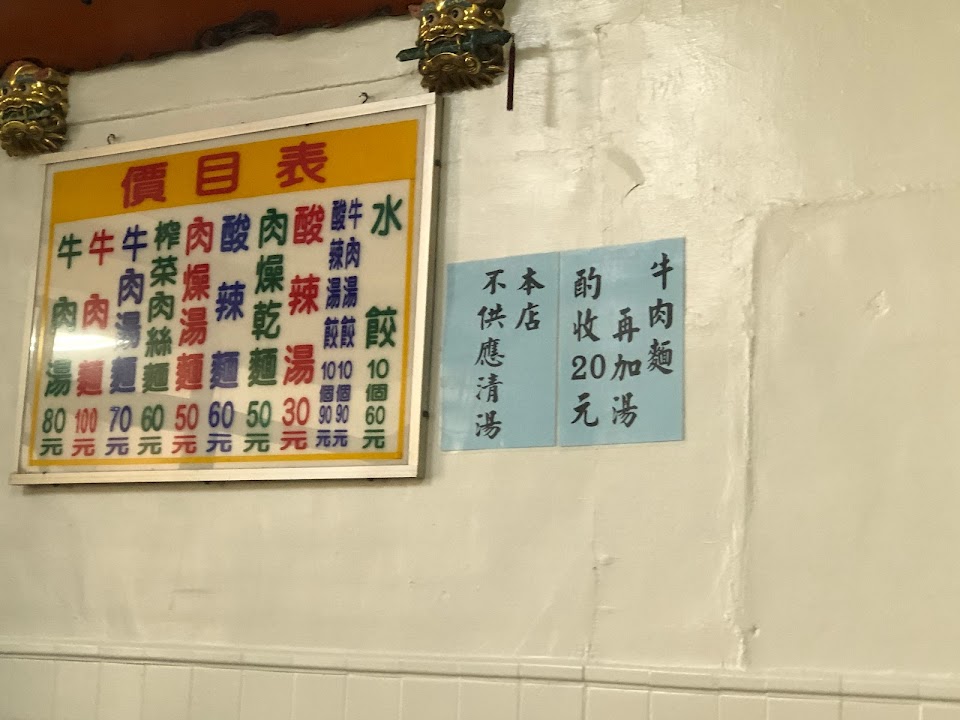 價目表
水餃10個60元
牛肉湯餃10個90元
酸辣湯餃10個90元
酸辣湯30元
肉燥乾麵50元
酸辣麵60元
肉燥湯麵50元
榨菜肉絲麵60元
牛肉湯麵70元
牛肉麵100元
牛肉湯80元
牛肉麵
再加湯
酌收20元
本店
不供應清湯